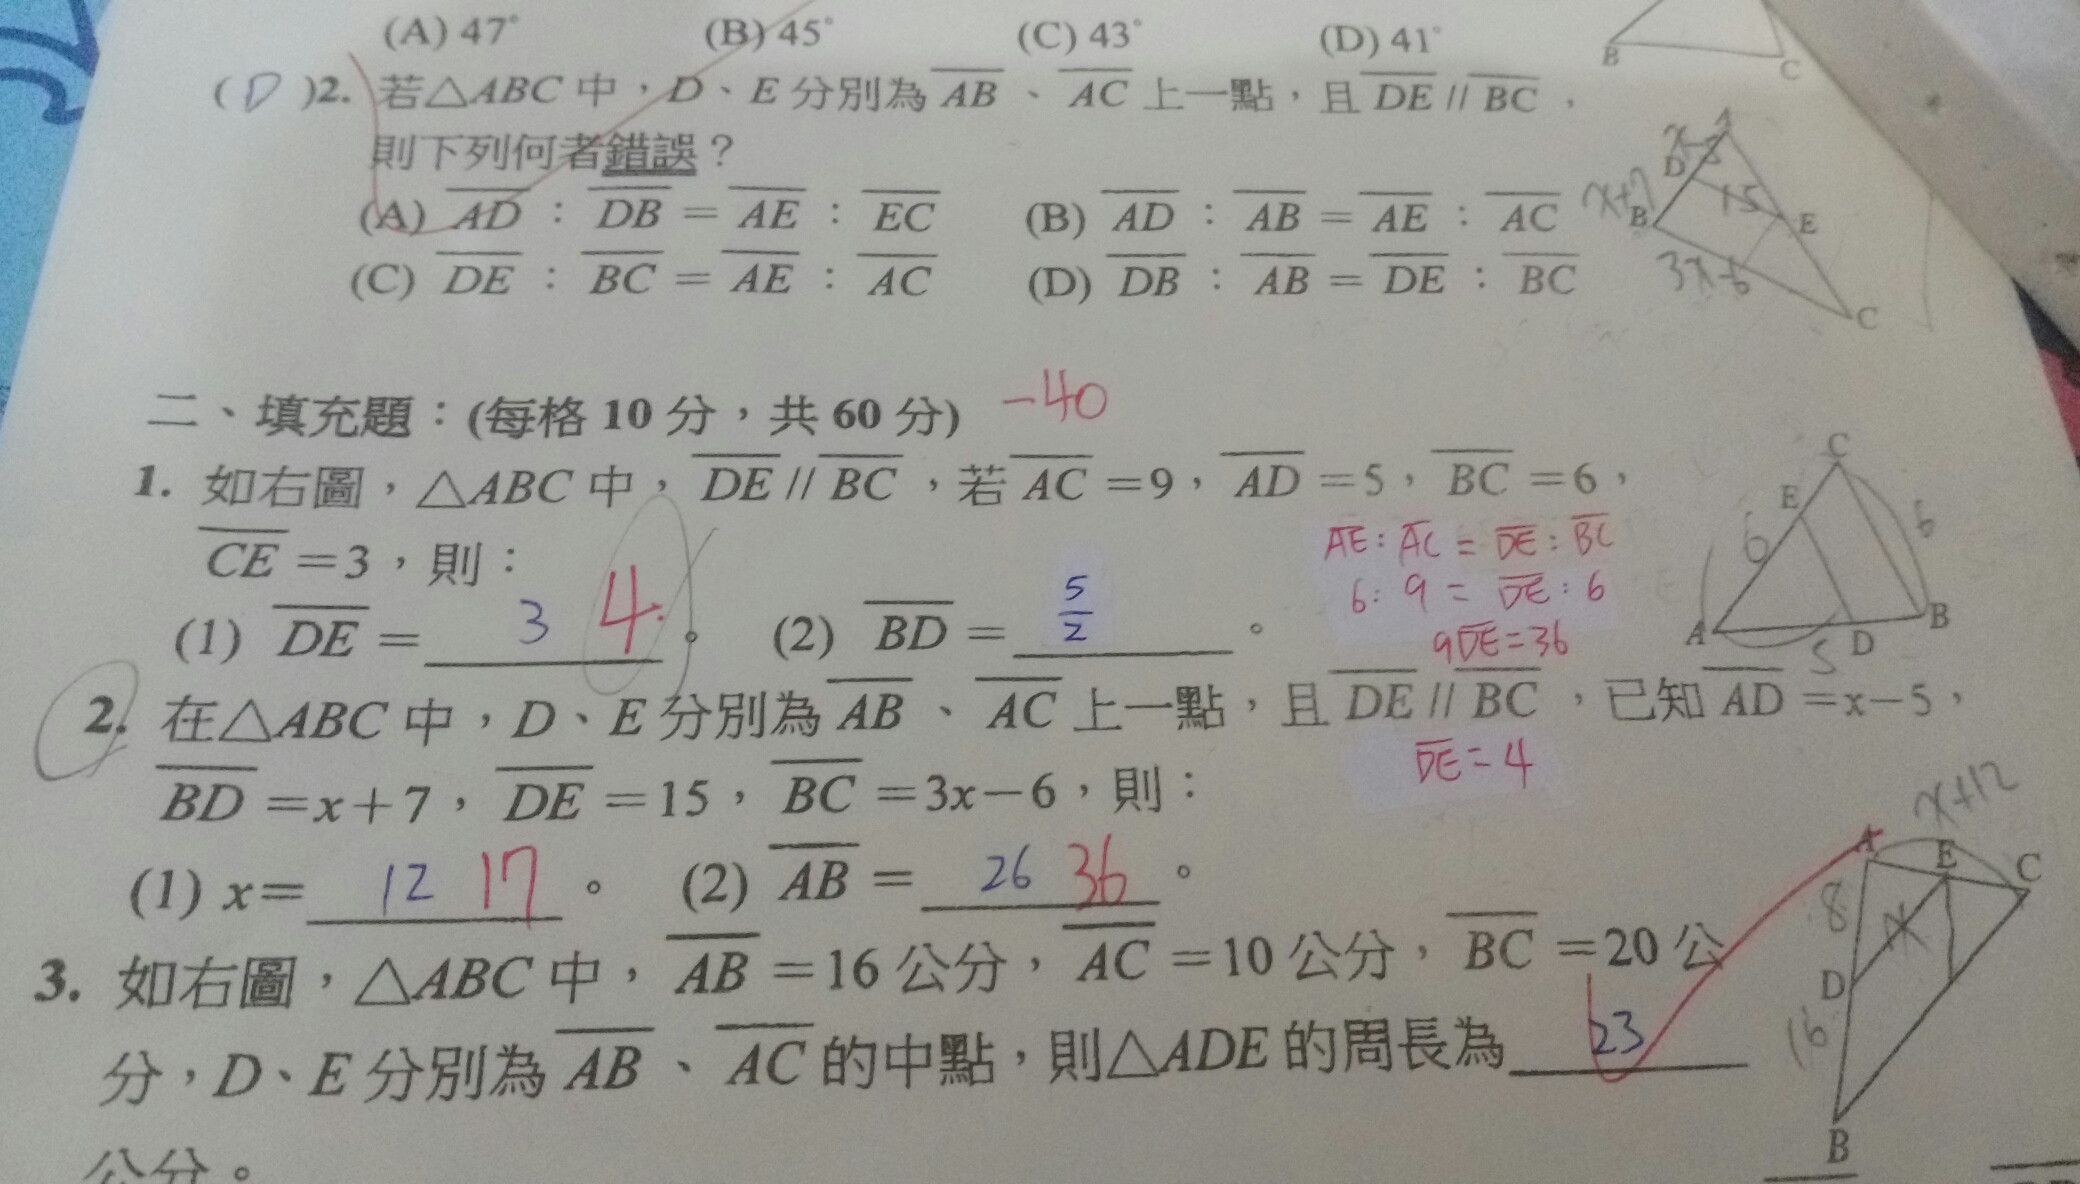 (A) 47° (B) 45° (C) 43° (D) 41°
B C
( D )2. 若△ABC 中，D、E 分別為 AB 、 AC 上一點，且 DE // BC ，
則下列何者錯誤？
(A) AD : DB = AE : EC (B) AD : AB = AE : AC
(C) DE : BC = AE : AC (D) DB : AB = DE : BC
A
D
15
B
E
3x-6
C
二、填充題：(每格 10 分，共 60 分) -40
1. 如右圖，△ABC 中， DE // BC ，若 AC =9， AD =5， BC =6，
CE =3，則：
(1) DE = 3 4 。 (2) BD = 5/2 。
AE : AC = DE : BC
6 : 9 = DE : 6
9DE = 36
DE = 4
C
E
6
6
A
5
D
B
2. 在△ABC 中，D、E 分別為 AB 、 AC 上一點，且 DE // BC ，已知 AD =x−5，
BD =x+7， DE =15， BC =3x−6，則：
(1) x= 12 17 。 (2) AB = 26 36 。
3. 如右圖，△ABC 中， AB =16 公分， AC =10 公分， BC =20 公
分，D、E 分別為 AB 、 AC 的中點，則△ADE 的周長為 23
公分。
x+12
A
E
C
8
x
D
16
B